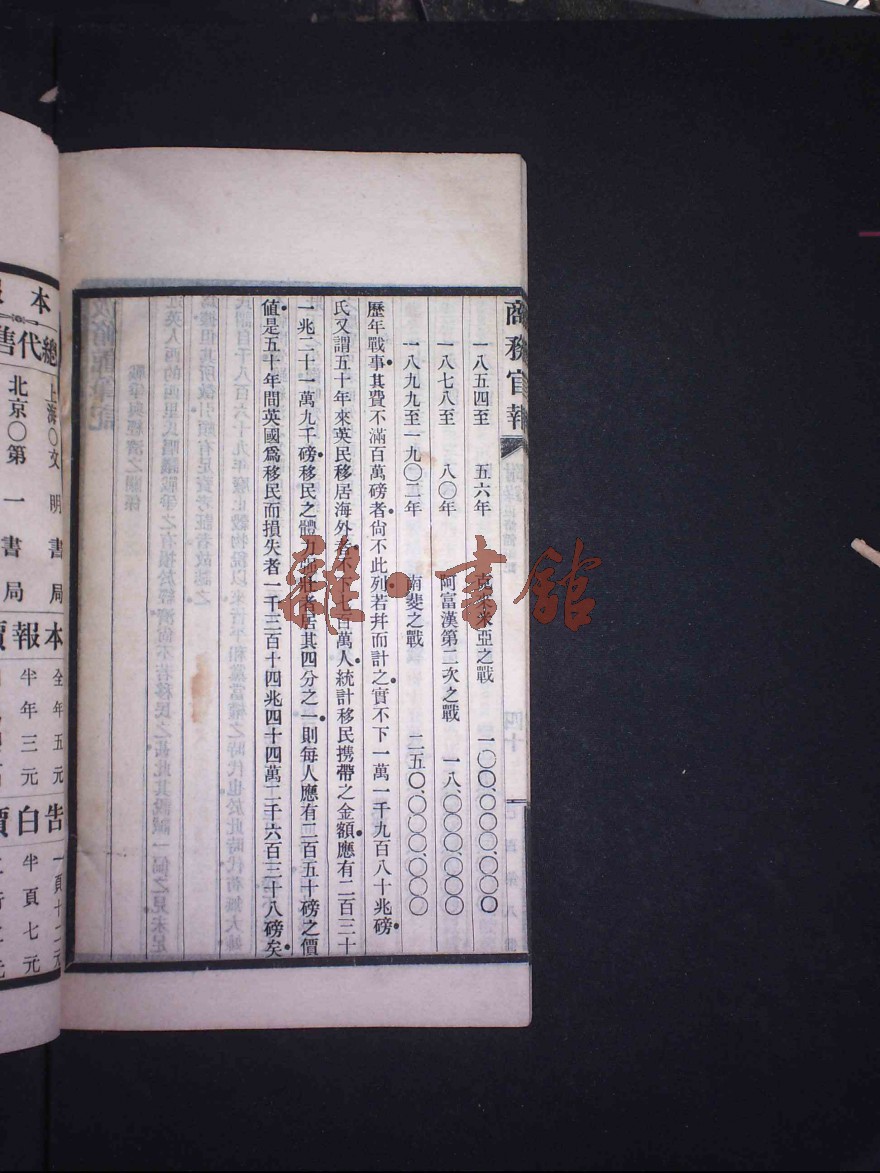 商務官報
一八五四至 五六年 克米亞之戰 一〇〇、〇〇〇、〇〇〇
一八七八至 八〇年 阿富漢第二次之戰 一八、〇〇〇、〇〇〇
一八九九至一九〇二年 南斐之戰 二五〇、〇〇〇、〇〇〇
歷年戰事其費不滿百萬磅者尙不此列若幷而計之實不下一萬一千九百八十兆磅
氏又謂五十年來英民移居海外者不下七百萬人統計移民携帶之金額應有二百三十
一兆二十一萬九千磅移民之體力強壯者居其四分之一則每人應有二百五十磅之價
値是五十年間英國爲移民而損失者一千三百十四兆四十四萬二千六百三十八磅矣
四十
本報
總代售
上海〇文明書局
北京〇第一書局
本報價
全年五元
半年三元
告白價
一頁十二元
半頁七元
雜·書館